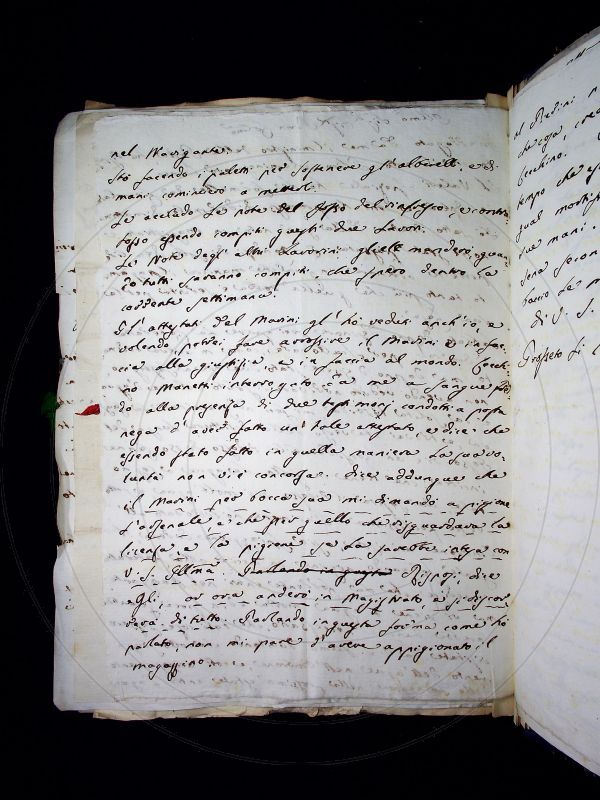 nel Navigante.
Sto facendo i paletti per sostenere gli alberelli, e di
mani comincerò a metterli.
Le accludo le note del fosso del diafresco, e contra
fosso essendo compiti questi due Lavori.
Le Note degl'altri Lavorini glielle manderò, quan
do tutti saranno compiti, che spero dentro la
corrente settimana.
Gl'attestati del Marini gl'hò veduti anch'io, e
volendo potrei fare arrossire il Marini e in fac
cia alla giustizia e in faccia al mondo. Cecch
ino Manetti interrogato da me a sangue fred
do alla presenza di due testimonj condotti a posta
nega d'aver fatto un tale attestato, e dice che
essendo stato fatto in quella maniera la sua vo
luntà non vi è concorsa. dice addunque che
il Marini per bocca sua mi dimandò a pigione
l'arsenale e che per quello che risguardava la
licenza e la pigione se la sarebbe intesa con
V. S. Illma. Parlando in questa Risposi, dice
egli, or ora anderò in Magistrato, e si discor
rerà di tutto. Parlando in questa forma, come hò
parlato, non mi pare d'avere appigionato il
magazzino.
al Redini
che cosa,
Cecchino.
tempo che
qual
due mani.
sera
faccio Le
di S. S.
Grosseto Li